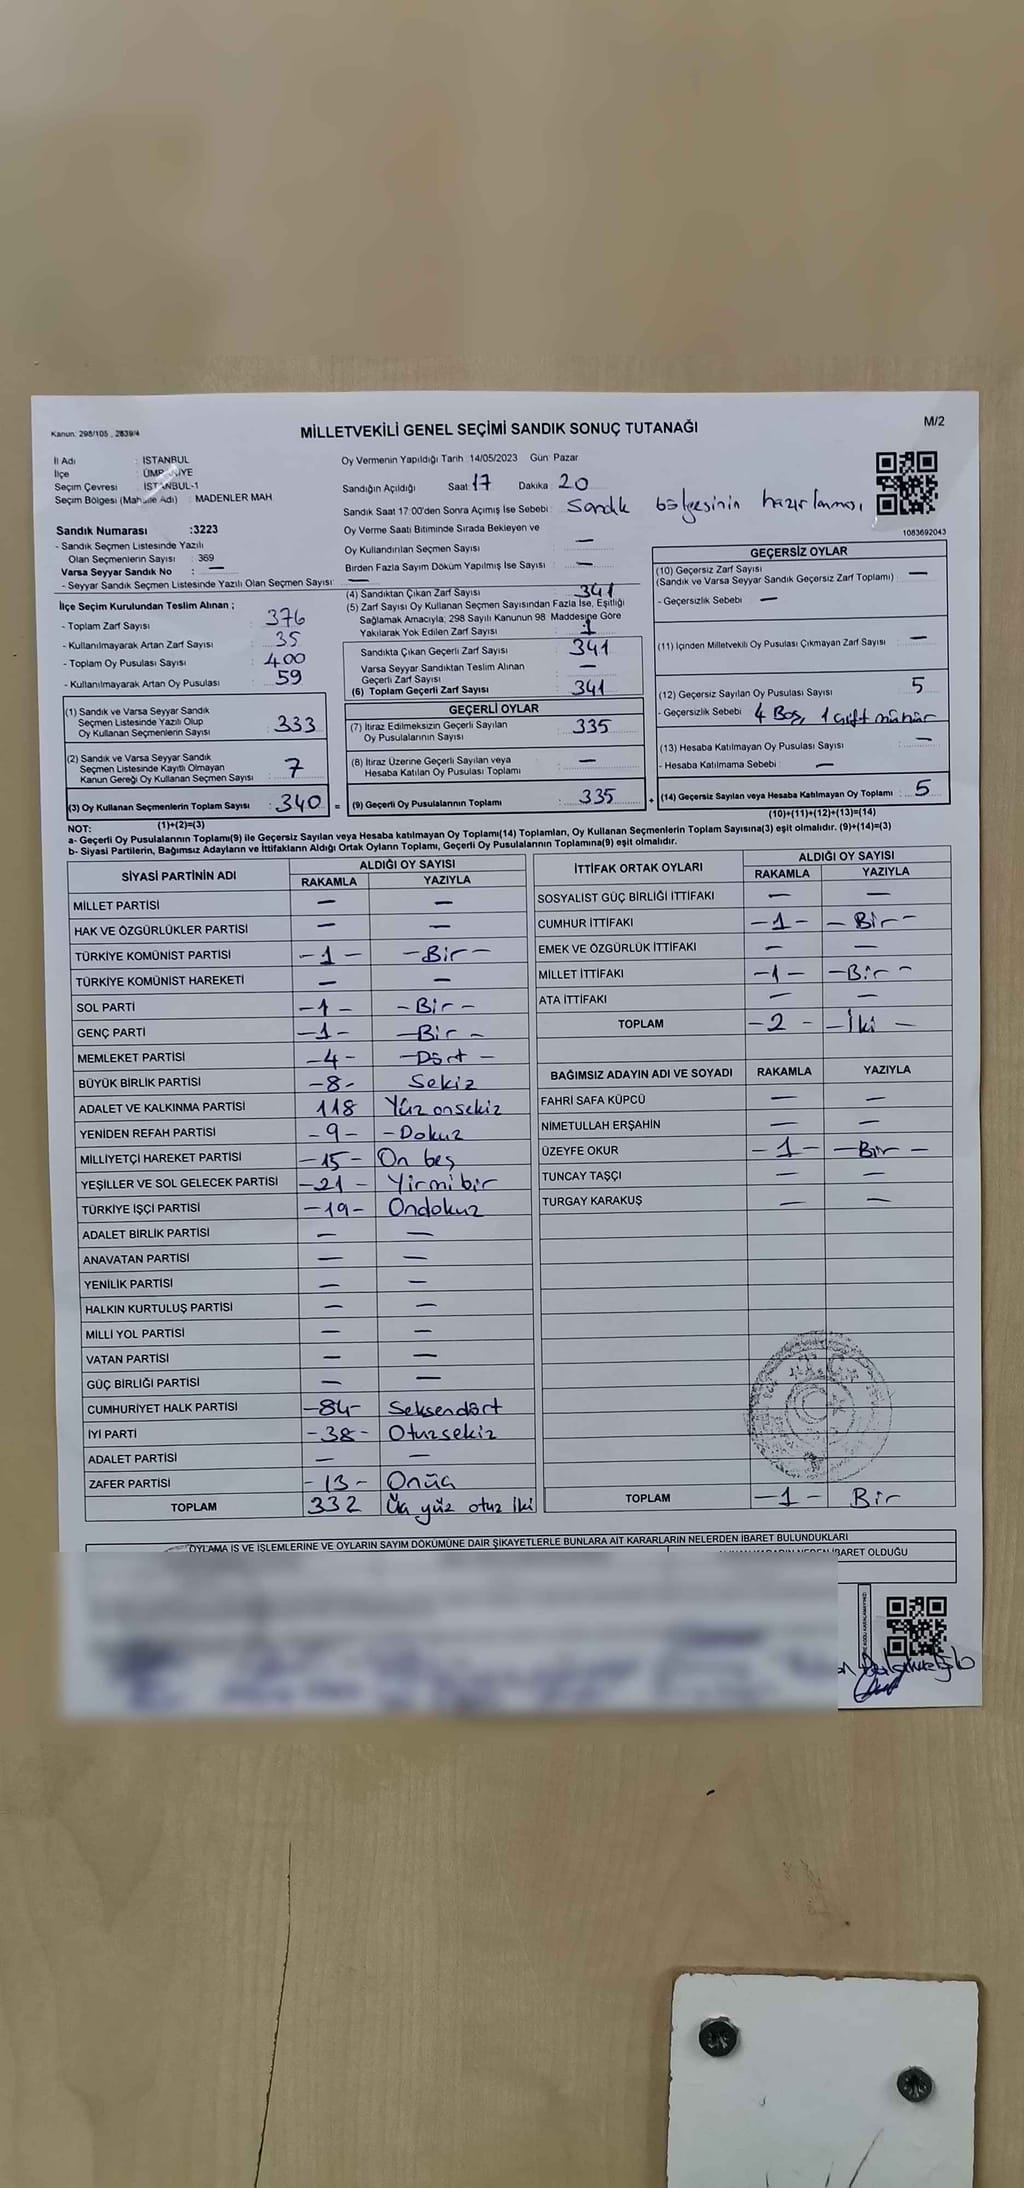 Kanun: 298/105 , 2839/4
MİLLETVEKİLİ GENEL SEÇİMİ SANDIK SONUÇ TUTANAĞI
M/2
İl Adı : İSTANBUL
İlçe
Seçim Çevresi : İSTANBUL-1
Seçim Bölgesi (Mahalle Adı) : MADENLER MAH
Sandık Numarası :3223
- Sandık Seçmen Listesinde Yazılı
Olan Seçmenlerin Sayısı : 369
Varsa Seyyar Sandık No : —
- Seyyar Sandık Seçmen Listesinde Yazılı Olan Seçmen Sayısı: —
Oy Vermenin Yapıldığı Tarih 14/05/2023 Gün Pazar
Sandığın Açıldığı Saat 17 Dakika 20
Sandık Saat 17 00'den Sonra Açımış İse Sebebi Sandık bölgesinin hazırlanması
Oy Verme Saati Bitiminde Sırada Bekleyen ve
Oy Kullandırılan Seçmen Sayısı —
Birden Fazla Sayım Döküm Yapılmış İse Sayısı —
1083692043
İlçe Seçim Kurulundan Teslim Alınan ;
- Toplam Zarf Sayısı : 376
- Kullanılmayarak Artan Zarf Sayısı : 35
- Toplam Oy Pusulası Sayısı : 400
- Kullanılmayarak Artan Oy Pusulası : 59
(1) Sandık ve Varsa Seyyar Sandık
Seçmen Listesinde Yazılı Olup
Oy Kullanan Seçmenlerin Sayısı : 333
(2) Sandık ve Varsa Seyyar Sandık
Seçmen Listesinde Kayıtlı Olmayan
Kanun Gereği Oy Kullanan Seçmen Sayısı : 7
(3) Oy Kullanan Seçmenlerin Toplam Sayısı : 340 =
(1)+(2)=(3)
(4) Sandıktan Çıkan Zarf Sayısı 341
(5) Zarf Sayısı Oy Kullanan Seçmen Sayısından Fazla İse, Eşitliği
Sağlamak Amacıyla; 298 Sayılı Kanunun 98 Maddesine Göre
Yakılarak Yok Edilen Zarf Sayısı : 1
Sandıkta Çıkan Geçerli Zarf Sayısı 341
Varsa Seyyar Sandıktan Teslim Alınan
Geçerli Zarf Sayısı —
(6) Toplam Geçerli Zarf Sayısı 341
GEÇERLİ OYLAR
(7) İtiraz Edilmeksizin Geçerli Sayılan
Oy Pusulalarının Sayısı : 335
(8) İtiraz Üzerine Geçerli Sayılan veya
Hesaba Katılan Oy Pusulası Toplamı : —
(9) Geçerli Oy Pusulalarının Toplamı : 335 +
GEÇERSİZ OYLAR
(10) Geçersiz Zarf Sayısı
(Sandık ve Varsa Seyyar Sandık Geçersiz Zarf Toplamı) : —
- Geçersizlik Sebebi : —
(11) İçinden Milletvekili Oy Pusulası Çıkmayan Zarf Sayısı : —
(12) Geçersiz Sayılan Oy Pusulası Sayısı : 5
- Geçersizlik Sebebi : 4 Boş, 1 çift mühür
(13) Hesaba Katılmayan Oy Pusulası Sayısı : —
- Hesaba Katılmama Sebebi : —
(14) Geçersiz Sayılan veya Hesaba Katılmayan Oy Toplamı : 5
(10)+(11)+(12)+(13)=(14)
NOT:
a- Geçerli Oy Pusulalarının Toplamı(9) ile Geçersiz Sayılan veya Hesaba katılmayan Oy Toplamı(14) Toplamları, Oy Kullanan Seçmenlerin Toplam Sayısına(3) eşit olmalıdır. (9)+(14)=(3)
b- Siyasi Partilerin, Bağımsız Adayların ve İttifakların Aldığı Ortak Oyların Toplamı, Geçerli Oy Pusulalarının Toplamına(9) eşit olmalıdır.
SİYASİ PARTİNİN ADI ALDIĞI OY SAYISI
RAKAMLA YAZIYLA
MİLLET PARTİSİ — —
HAK VE ÖZGÜRLÜKLER PARTİSİ — —
TÜRKİYE KOMÜNİST PARTİSİ -1- -Bir-
TÜRKİYE KOMÜNİST HAREKETİ — —
SOL PARTİ -1- -Bir-
GENÇ PARTİ -1- -Bir-
MEMLEKET PARTİSİ -4- -Dört-
BÜYÜK BİRLİK PARTİSİ -8- Sekiz
ADALET VE KALKINMA PARTİSİ 118 Yüz onsekiz
YENİDEN REFAH PARTİSİ -9- -Dokuz
MİLLİYETÇİ HAREKET PARTİSİ -15- On beş
YEŞİLLER VE SOL GELECEK PARTİSİ -21- Yirmibir
TÜRKİYE İŞÇİ PARTİSİ -19- Ondokuz
ADALET BİRLİK PARTİSİ — —
ANAVATAN PARTİSİ — —
YENİLİK PARTİSİ — —
HALKIN KURTULUŞ PARTİSİ — —
MİLLİ YOL PARTİSİ — —
VATAN PARTİSİ — —
GÜÇ BİRLİĞİ PARTİSİ — —
CUMHURİYET HALK PARTİSİ -84- Seksendört
İYİ PARTİ -38- Otuzsekiz
ADALET PARTİSİ — —
ZAFER PARTİSİ -13- Onüç
TOPLAM 332 Üç yüz otuz iki
İTTİFAK ORTAK OYLARI ALDIĞI OY SAYISI
RAKAMLA YAZIYLA
SOSYALIST GÜÇ BİRLİĞİ İTTİFAKI — —
CUMHUR İTTİFAKI -1- -Bir-
EMEK VE ÖZGÜRLÜK İTTİFAKI — —
MİLLET İTTİFAKI -1- -Bir-
ATA İTTİFAKI — —
TOPLAM -2- -İki-
BAĞIMSIZ ADAYIN ADI VE SOYADI RAKAMLA YAZIYLA
FAHRİ SAFA KÜPCÜ — —
NİMETULLAH ERŞAHİN — —
ÜZEYFE OKUR -1- -Bir-
TUNCAY TAŞÇI — —
TURGAY KARAKUŞ — —
TOPLAM -1- Bir
OYLAMA İŞ VE İŞLEMLERİNE VE OYLARIN SAYIM DÖKÜMÜNE DAİR ŞİKAYETLERLE BUNLARA AİT KARARLARIN NELERDEN İBARET BULUNDUKLARI
İBARET OLDUĞU